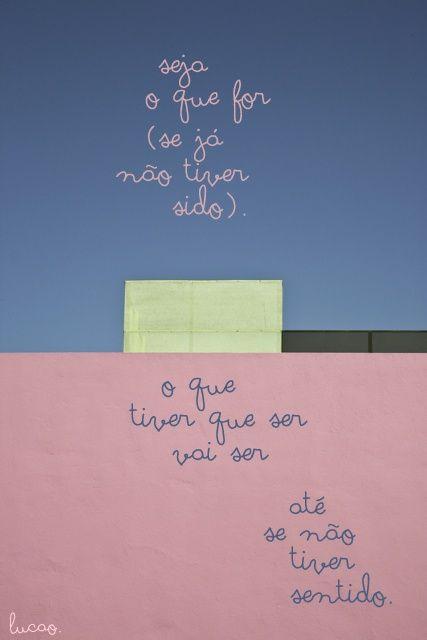 seja
o que for
(se já
não tiver
sido).
o que
tiver que ser
vai ser
até
se não
tiver
sentido.
lucao.